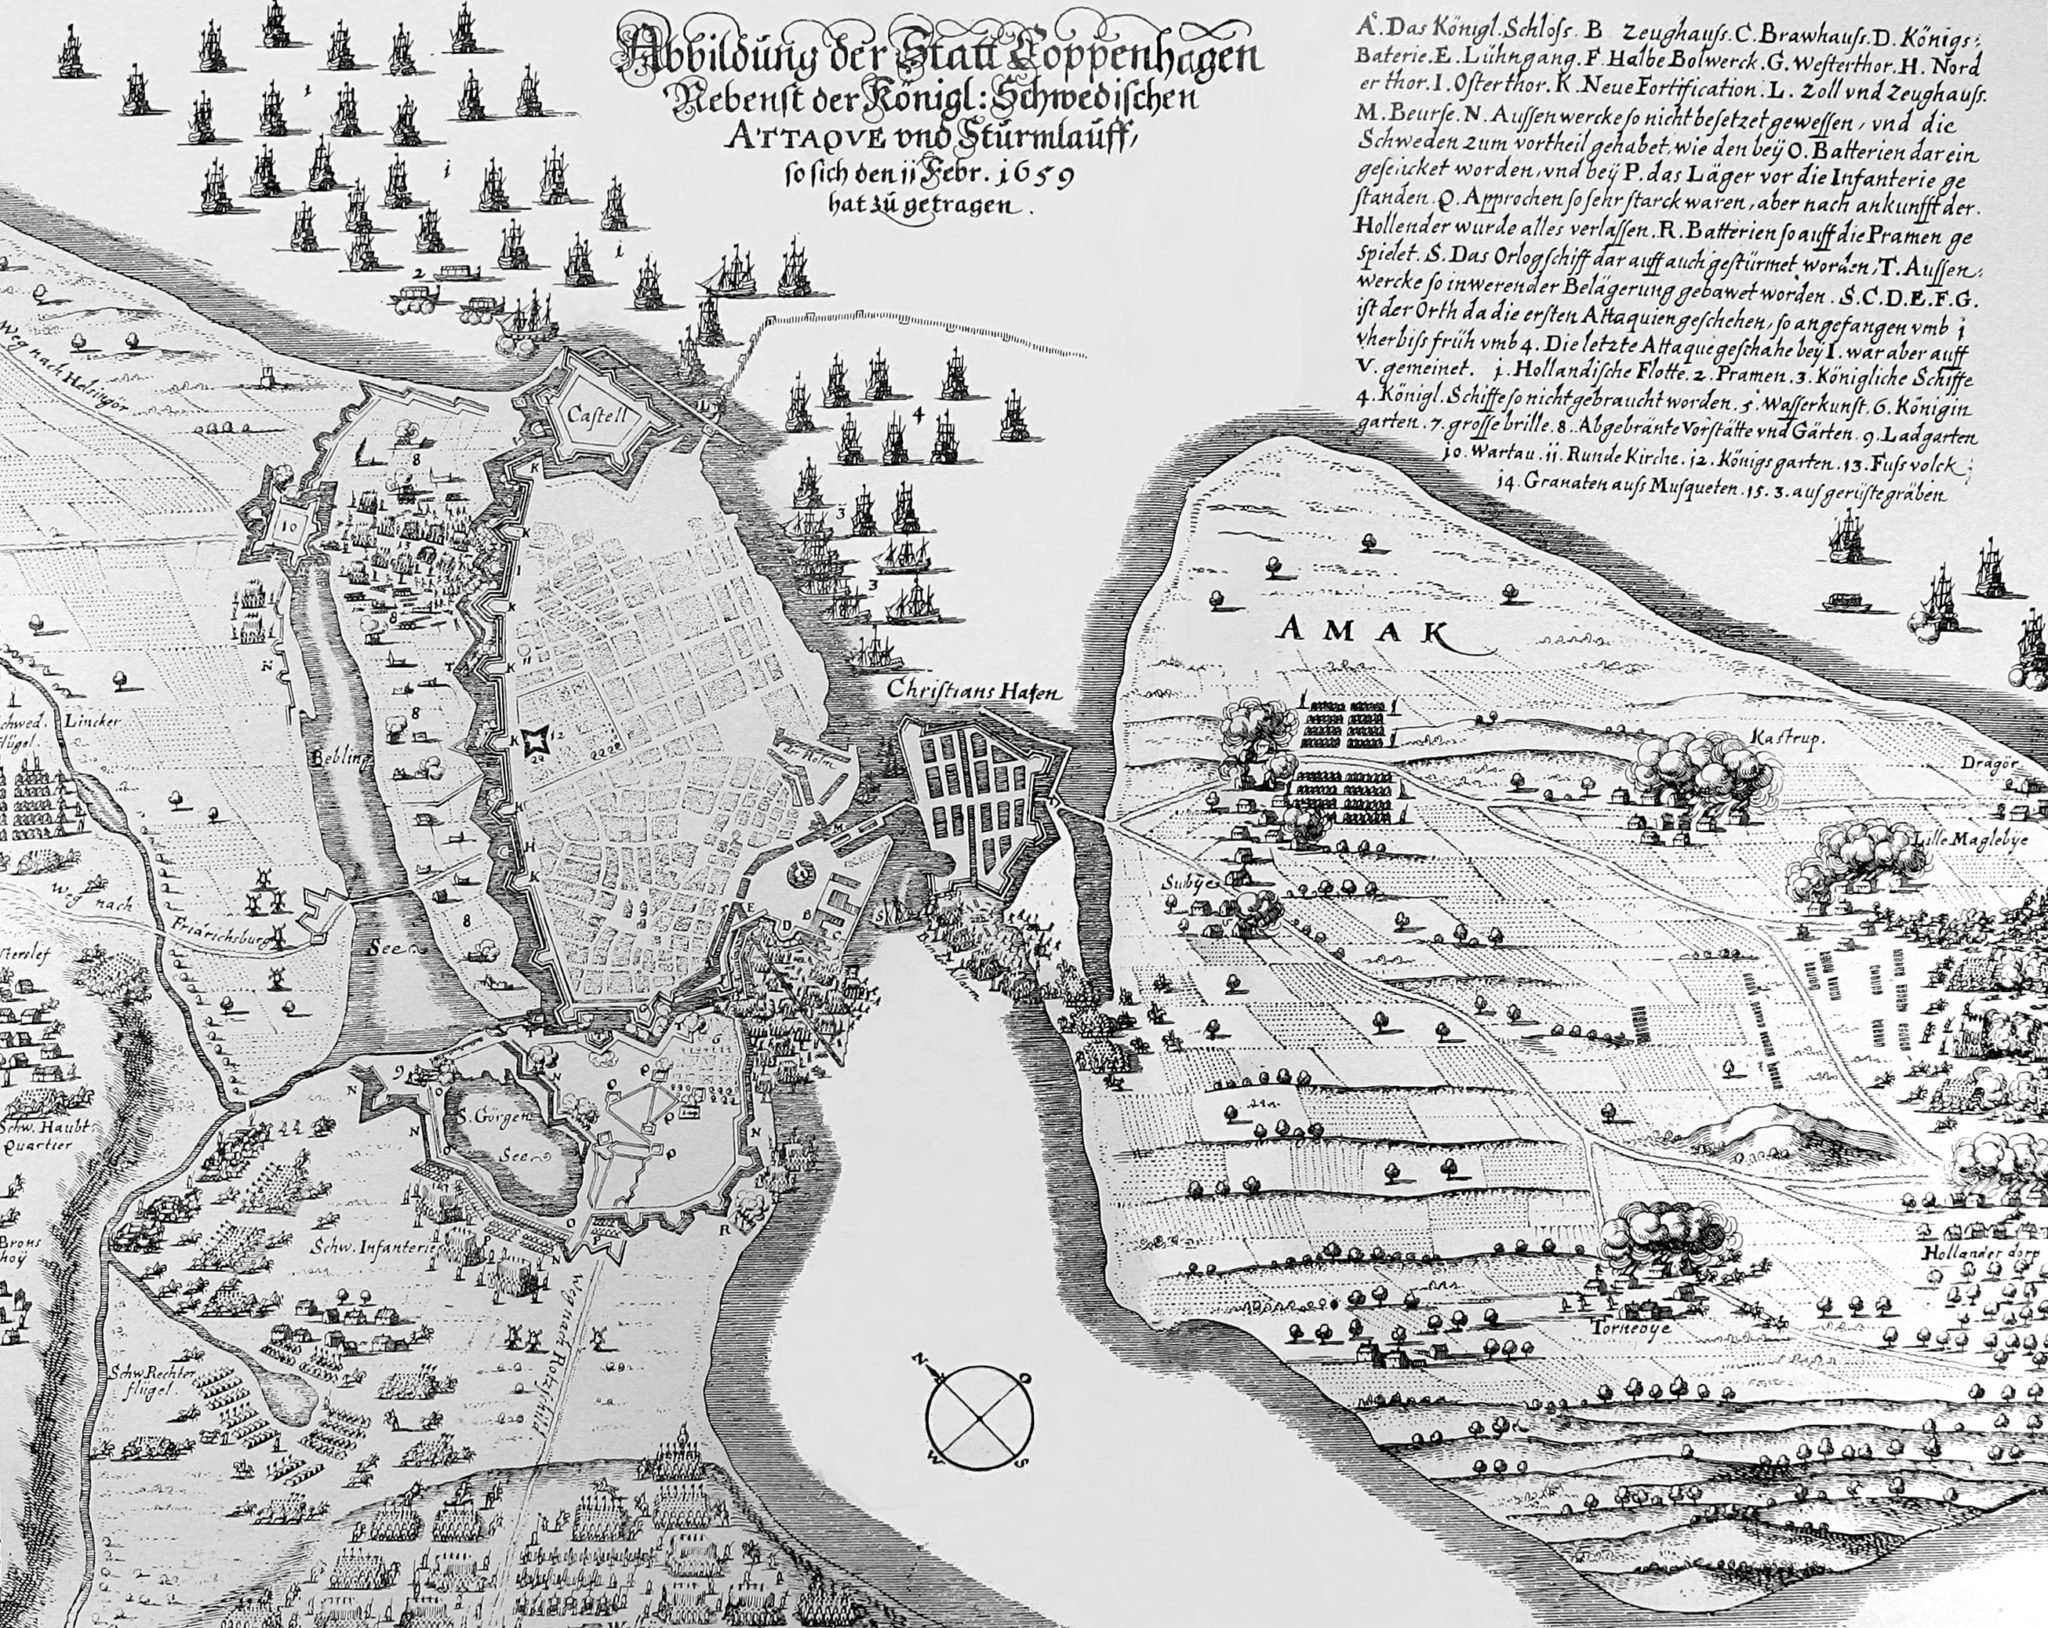 Abbildung der Statt Coppenhagen
Nebenst der Königl: Schwedischen
ATTAQVE vnd Stürmlauff,
so sich den 11 Febr. 1659
hat zů getragen.
A. Das Königl. Schloss. B Zeughauss. C. Brawhauss. D. Königs:
Baterie. E. Lühngang. F. Halbe Bolwerck. G. Westerthor. H. Nord
er thor. I. Osterthor. K. Neue Fortification. L. Zoll vnd Zeughauss.
M. Beurse. N. Aussenwercke so nicht besetzet gewessen, vnd die
Schweden zum vortheil gehabet, wie den beÿ O. Batterien darein
geseicket worden, vnd beÿ P. das Läger vor die Infanterie ge
standen. Q. Approchen so sehr starck waren, aber nach ankunfft der.
Hollender wurde alles verlassen. R. Batterien so auff die Pramen ge
spielet. S. Das Orlogschiff dar auff auch gestürmet worden, T. Aussen:
wercke so in werender Belägerung gebawet worden. S.C.D.E.F.G.
ist der Orth da die ersten Attaquien geschehen, so angefangen vmb 1
vher biss früh vmb 4. Die letzte Attaque geschahe beÿ I. war aber auff
V. gemeinet. 1. Hollandische Flotte. 2. Pramen. 3. Königliche Schiffe
4. Königl. Schiffe so nicht gebraucht worden. 5. Wasserkunst. 6. Königin
garten. 7. grosse brille. 8. Abgebrante Vorstätte vnd Gärten. 9. Ladgarten
10. Wartau. 11. Runde Kirche. 12. Königs garten. 13. Fuss volck
14. Granaten auss Musqueten. 15. 3. aus gerüste gräben
1
1
1
2
Weg nach Helsigör
Castell
8
4
K
K
10
13
3
I
K
8
3
AMAK
K
11
N
T
Christians Hafen
8
K
12
Schwed. Lincker
flügel.
Bebling
der Holm
Kastrup.
Dragör
K
M
Lille Maglebÿe
H
K
Subÿe
Weg nach
Friarichsburg
8
E
B
D
C
S
See
N
9
O
6
T
S. Görgen
See
N
Q
Q
Q
Q
N
N
Schw. Haubt
Quartier
Schw. Infanterie
P
O
P
N
R
Brons
hoÿ
Hollander dorp
Weg nach Rotzschild
Tornebÿe
Schw. Rechter
flügel.
N
O
W
S